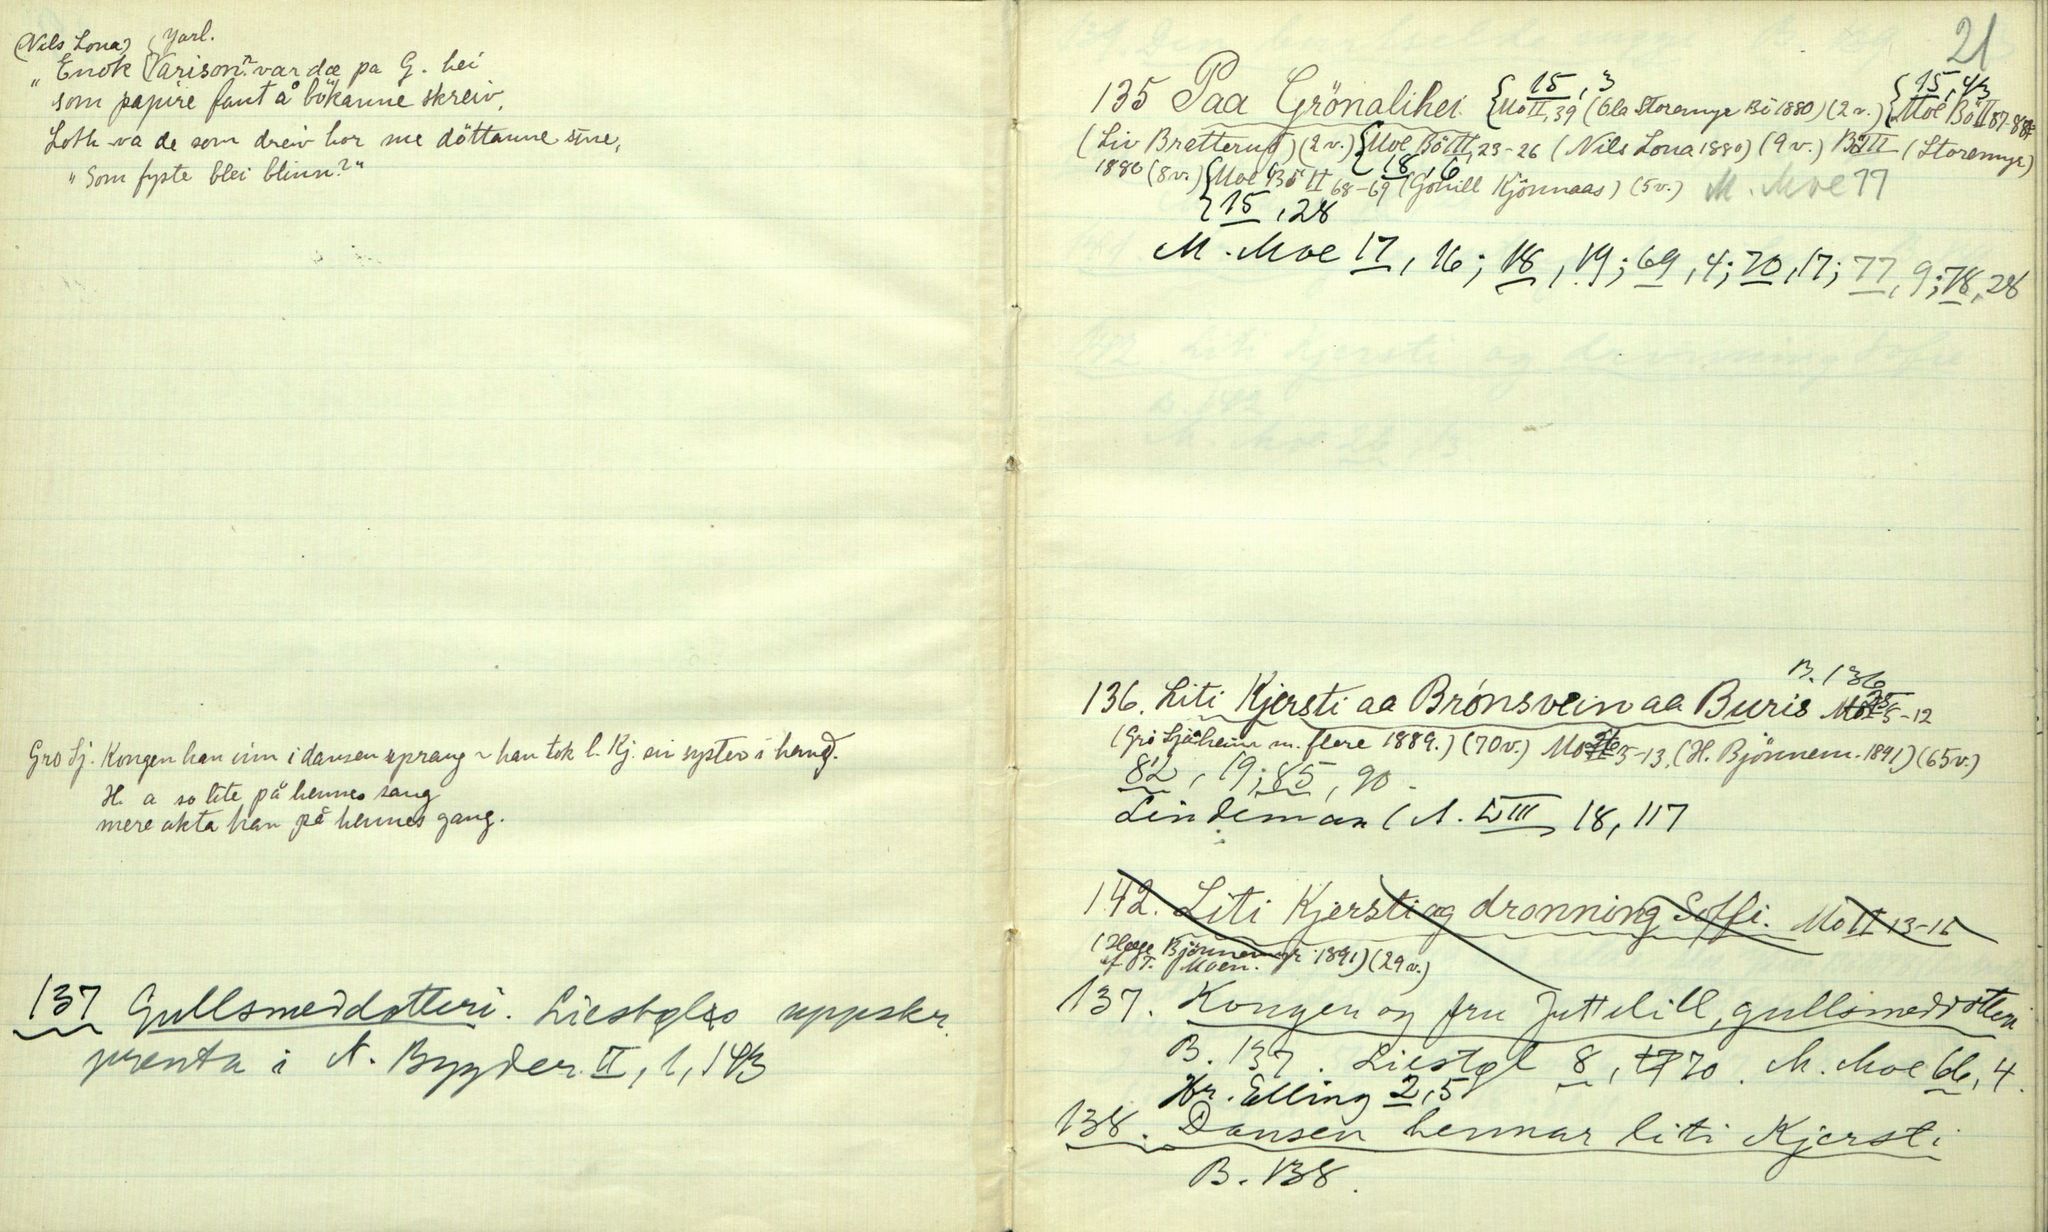 (Nils Lona) (Jarl.
"Enok Varison". var dæ pa G. hei
som papire fant å bökanne skreiv,
Loth va de som dreiv hor me döttanne sine,
"Som fyste blei blinn?"
Gro Sj. Kongen han inn i dansen sprang ~ han tok l. Kj. ein systev i hand.
H. a so lite på hennes sang
mere akta han på hennes gang.
137 Gullsmeddotteri. Liestøls uppskr.
prenta i N. Bygder II, 1, 143
21
135 Paa Grönalihei {15, 3 Mo II, 39 (Ola Storemyr Bö 1880) (2 v.) {15, 43 Moe Bö II 87-88
(Liv Bratterud) (2 v.) {Moe Bö III, 23-26 (Nils Lona 1880) (9 v.) Bö II (Storemyr)
1880 (8 v.) {Moe Bö II 68-69 18, 6 (Gohill Kjönnaas) (5 v.) M. Moe 77
{15, 28
M. Moe 17, 16; 18, 19; 69, 4; 70, 17; 77, 9; 78, 28
B. 136
136. Liti Kjersti aa Brönsvein aa Buris 25 5-12
(Gro Sjåheim m. flere 1889.) (70 v.) Moe 26 5-13. (H. Bjönnem. 1891) (65 v.)
82, 19; 85, 90.
Lindeman ( A. LVIII 18, 117
142. Liti Kjersti og dronning Soffi. Mo II 13-16
(Hæge Bjönnemyr 1891) (29 v.)
af T. Moen.
137. Kongen og fru Juttelill, gullsmeddotteri
B. 137. Liestøl 8, 70. M. Moe 66, 4.
Hr. Elling 2, 5
138. Dansen hennar liti Kjersti
B. 138.